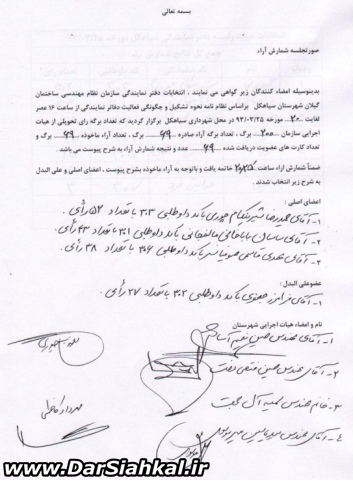 بسمه تعالی
صورتجلسه شمارش آراء
بدینوسیله امضاء کنندگان زیر گواهی می نمایند ، انتخابات دفتر نمایندگی سازمان نظام مهندسی ساختمان
گیلان شهرستان سیاهکل براساس نظام نامه نحوه تشکیل و چگونگی فعالیت دفاتر نمایندگی از ساعت ۱۶ عصر
لغایت ۲۰ مورخه ۹۳/۰۳/۲۵ در محل شهرداری سیاهکل برگزار گردید که تعداد برگه رای تحویلی از هیات
اجرایی سازمان ۲۰۰ برگ ، تعداد برگه آراء صادره ۶۹ برگ ، تعداد آراء ماخوذه ۶۹ برگ و
تعداد کارت های عضویت دریافت شده ۶۹ عدد و نتیجه شمارش آراء به شرح پیوست می باشد .
ضمناً شمارش آراء ساعت خاتمه یافت و باتوجه به آراء ماخوذه بشرح پیوست ، اعضای اصلی و علی البدل
به شرح زیر انتخاب شدند .
اعضای اصلی :
۱- آقای حمیدرضا حیدری با کد داوطلبی ۳۰۳ با تعداد ۵۲ رأی.
۲- آقای ساسان باباخانی با کد داوطلبی ۳۰۱ با تعداد ۴۳ رأی
۳- آقای مهدی قاسمی با کد داوطلبی ۳۰۶ با تعداد ۳۸ رأی.
عضو علی البدل :
۱- آقای فرامرز با کد داوطلبی ۳۰۲ با تعداد ۲۷ رأی.
نام و امضاء هیات اجرایی شهرستان
۱- آقای مهندس حسن
۲- آقای مهندس حسین
۳- خانم مهندس سمیه آل محبت
۴- آقای مهندس سید
www.DarSiahkal.ir